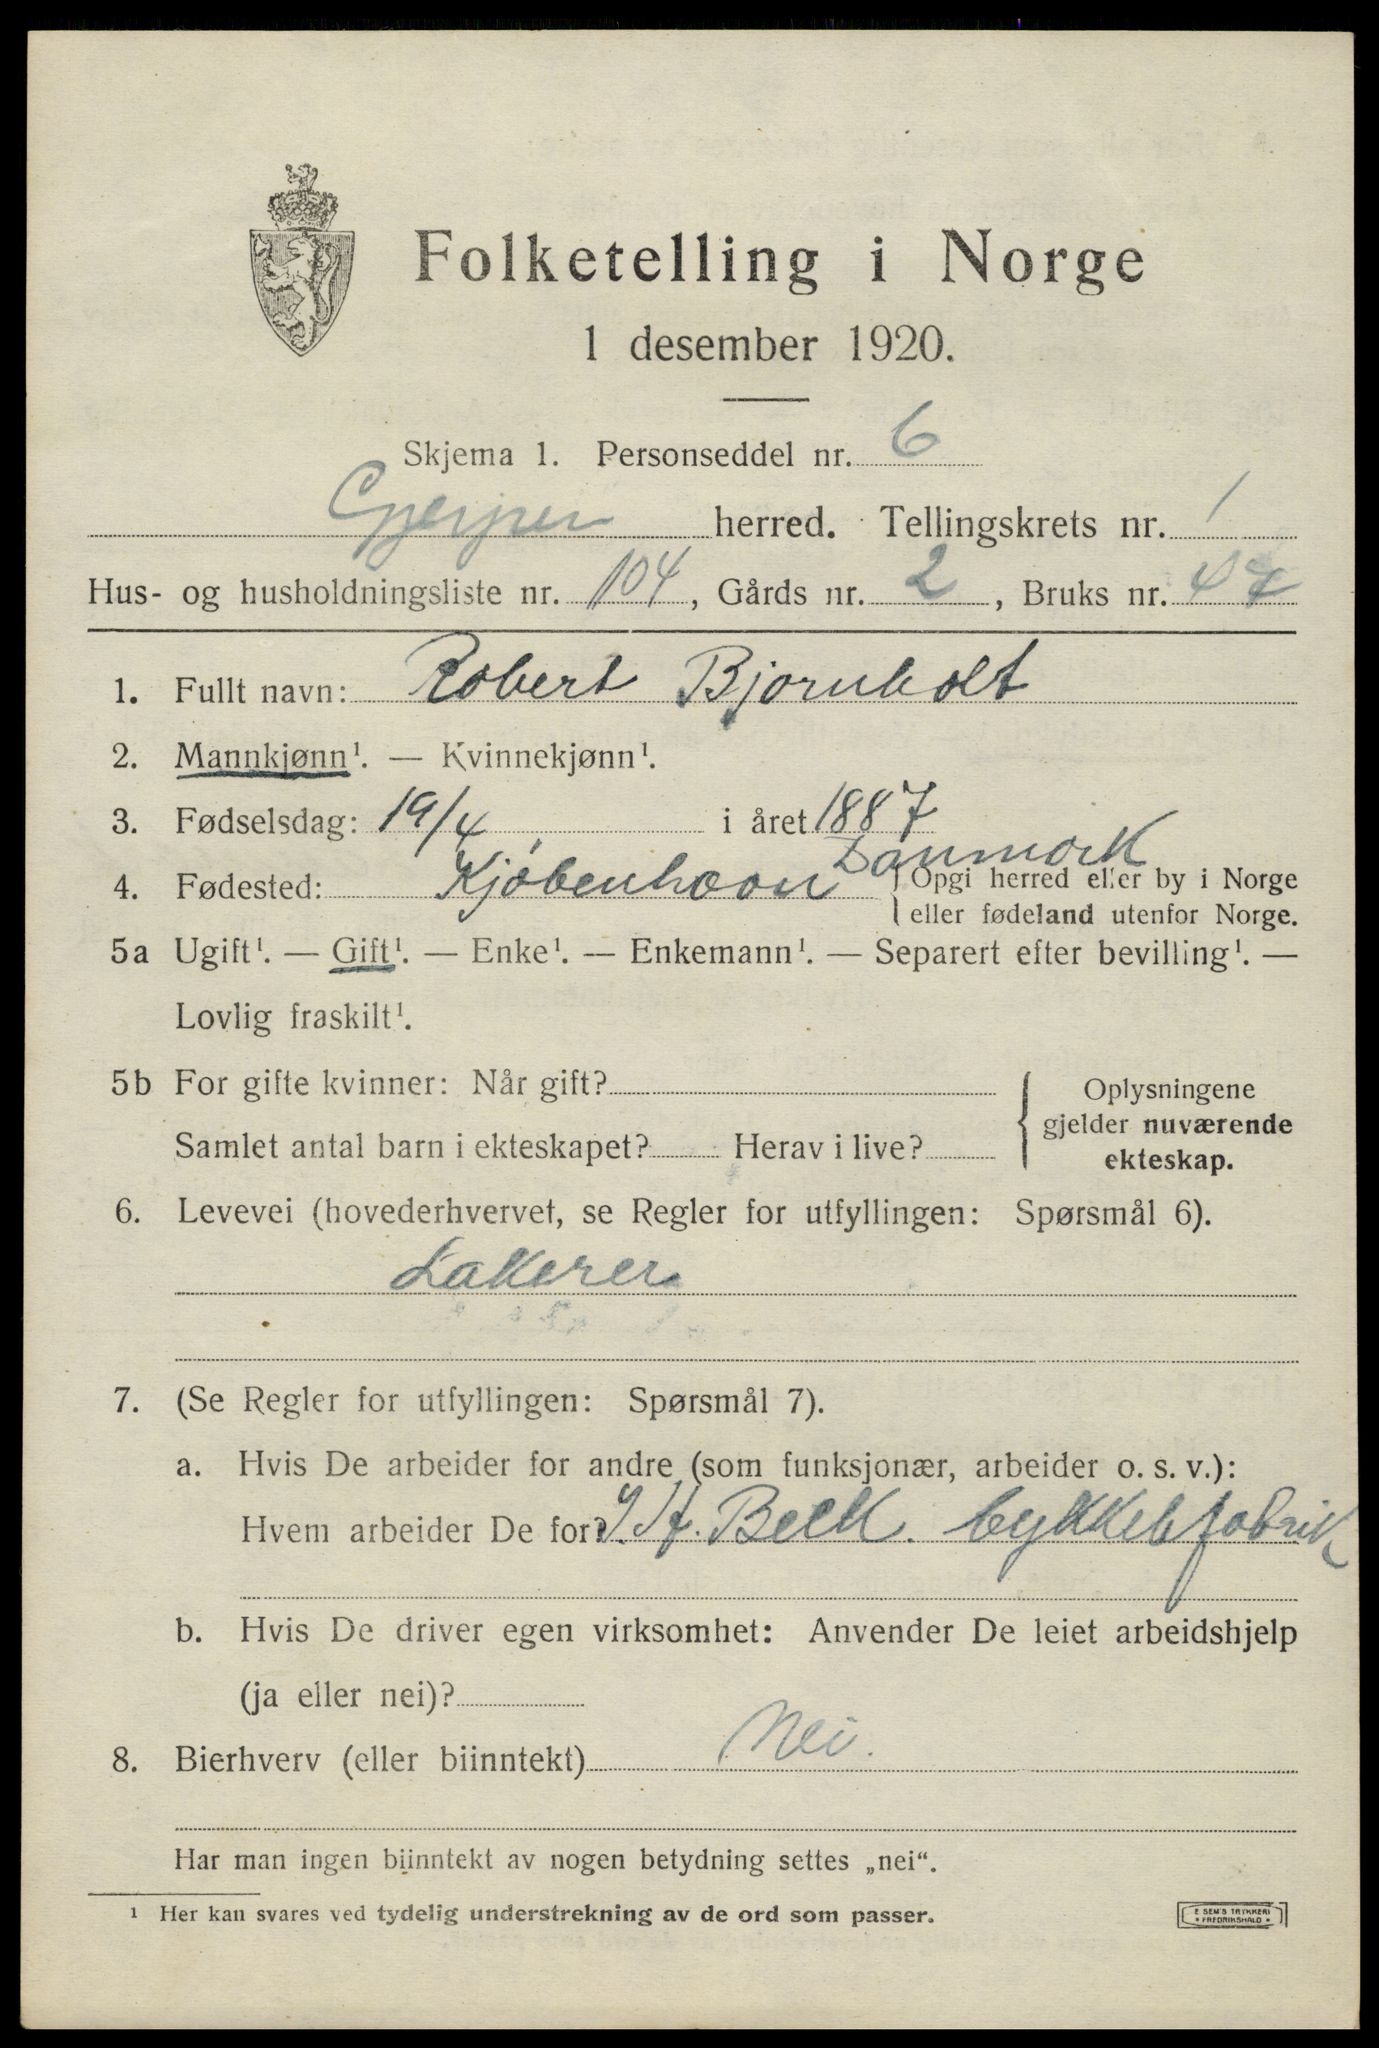 Folketelling i Norge
1 desember 1920.
Skjema 1. Personseddel nr. 6
Gjerpen herred. Tellingskrets nr. 1
Hus- og husholdningsliste nr. 104, Gårds nr. 2, Bruks nr.
1. Fullt navn: Robert Bjornholt
2. Mannkjønn¹. — Kvinnekjønn¹.
3. Fødselsdag: 19/4 i året 1887
4. Fødested: Kjøbenhavn Danmark
Opgi herred eller by i Norge
eller fødeland utenfor Norge.
5a Ugift¹. — Gift¹. — Enke¹. — Enkemann¹. — Separert efter bevilling¹. —
Lovlig fraskilt¹.
5b For gifte kvinner: Når gift?
Samlet antal barn i ekteskapet? Herav i live?
Oplysningene
gjelder nuværende
ekteskap.
6. Levevei (hovederhvervet, se Regler for utfyllingen: Spørsmål 6).
Lakerer
7. (Se Regler for utfyllingen: Spørsmål 7).
a. Hvis De arbeider for andre (som funksjonær, arbeider o. s. v.):
Hvem arbeider De for? J. H. Beck. Cykkelfabrik
b. Hvis De driver egen virksomhet: Anvender De leiet arbeidshjelp
(ja eller nei)?
8. Bierhverv (eller biinntekt) Nei.
Har man ingen biinntekt av nogen betydning settes „nei“.
¹ Her kan svares ved tydelig understrekning av de ord som passer.
E SEM'S TRYKKERI
* FREDRIKSHALD *